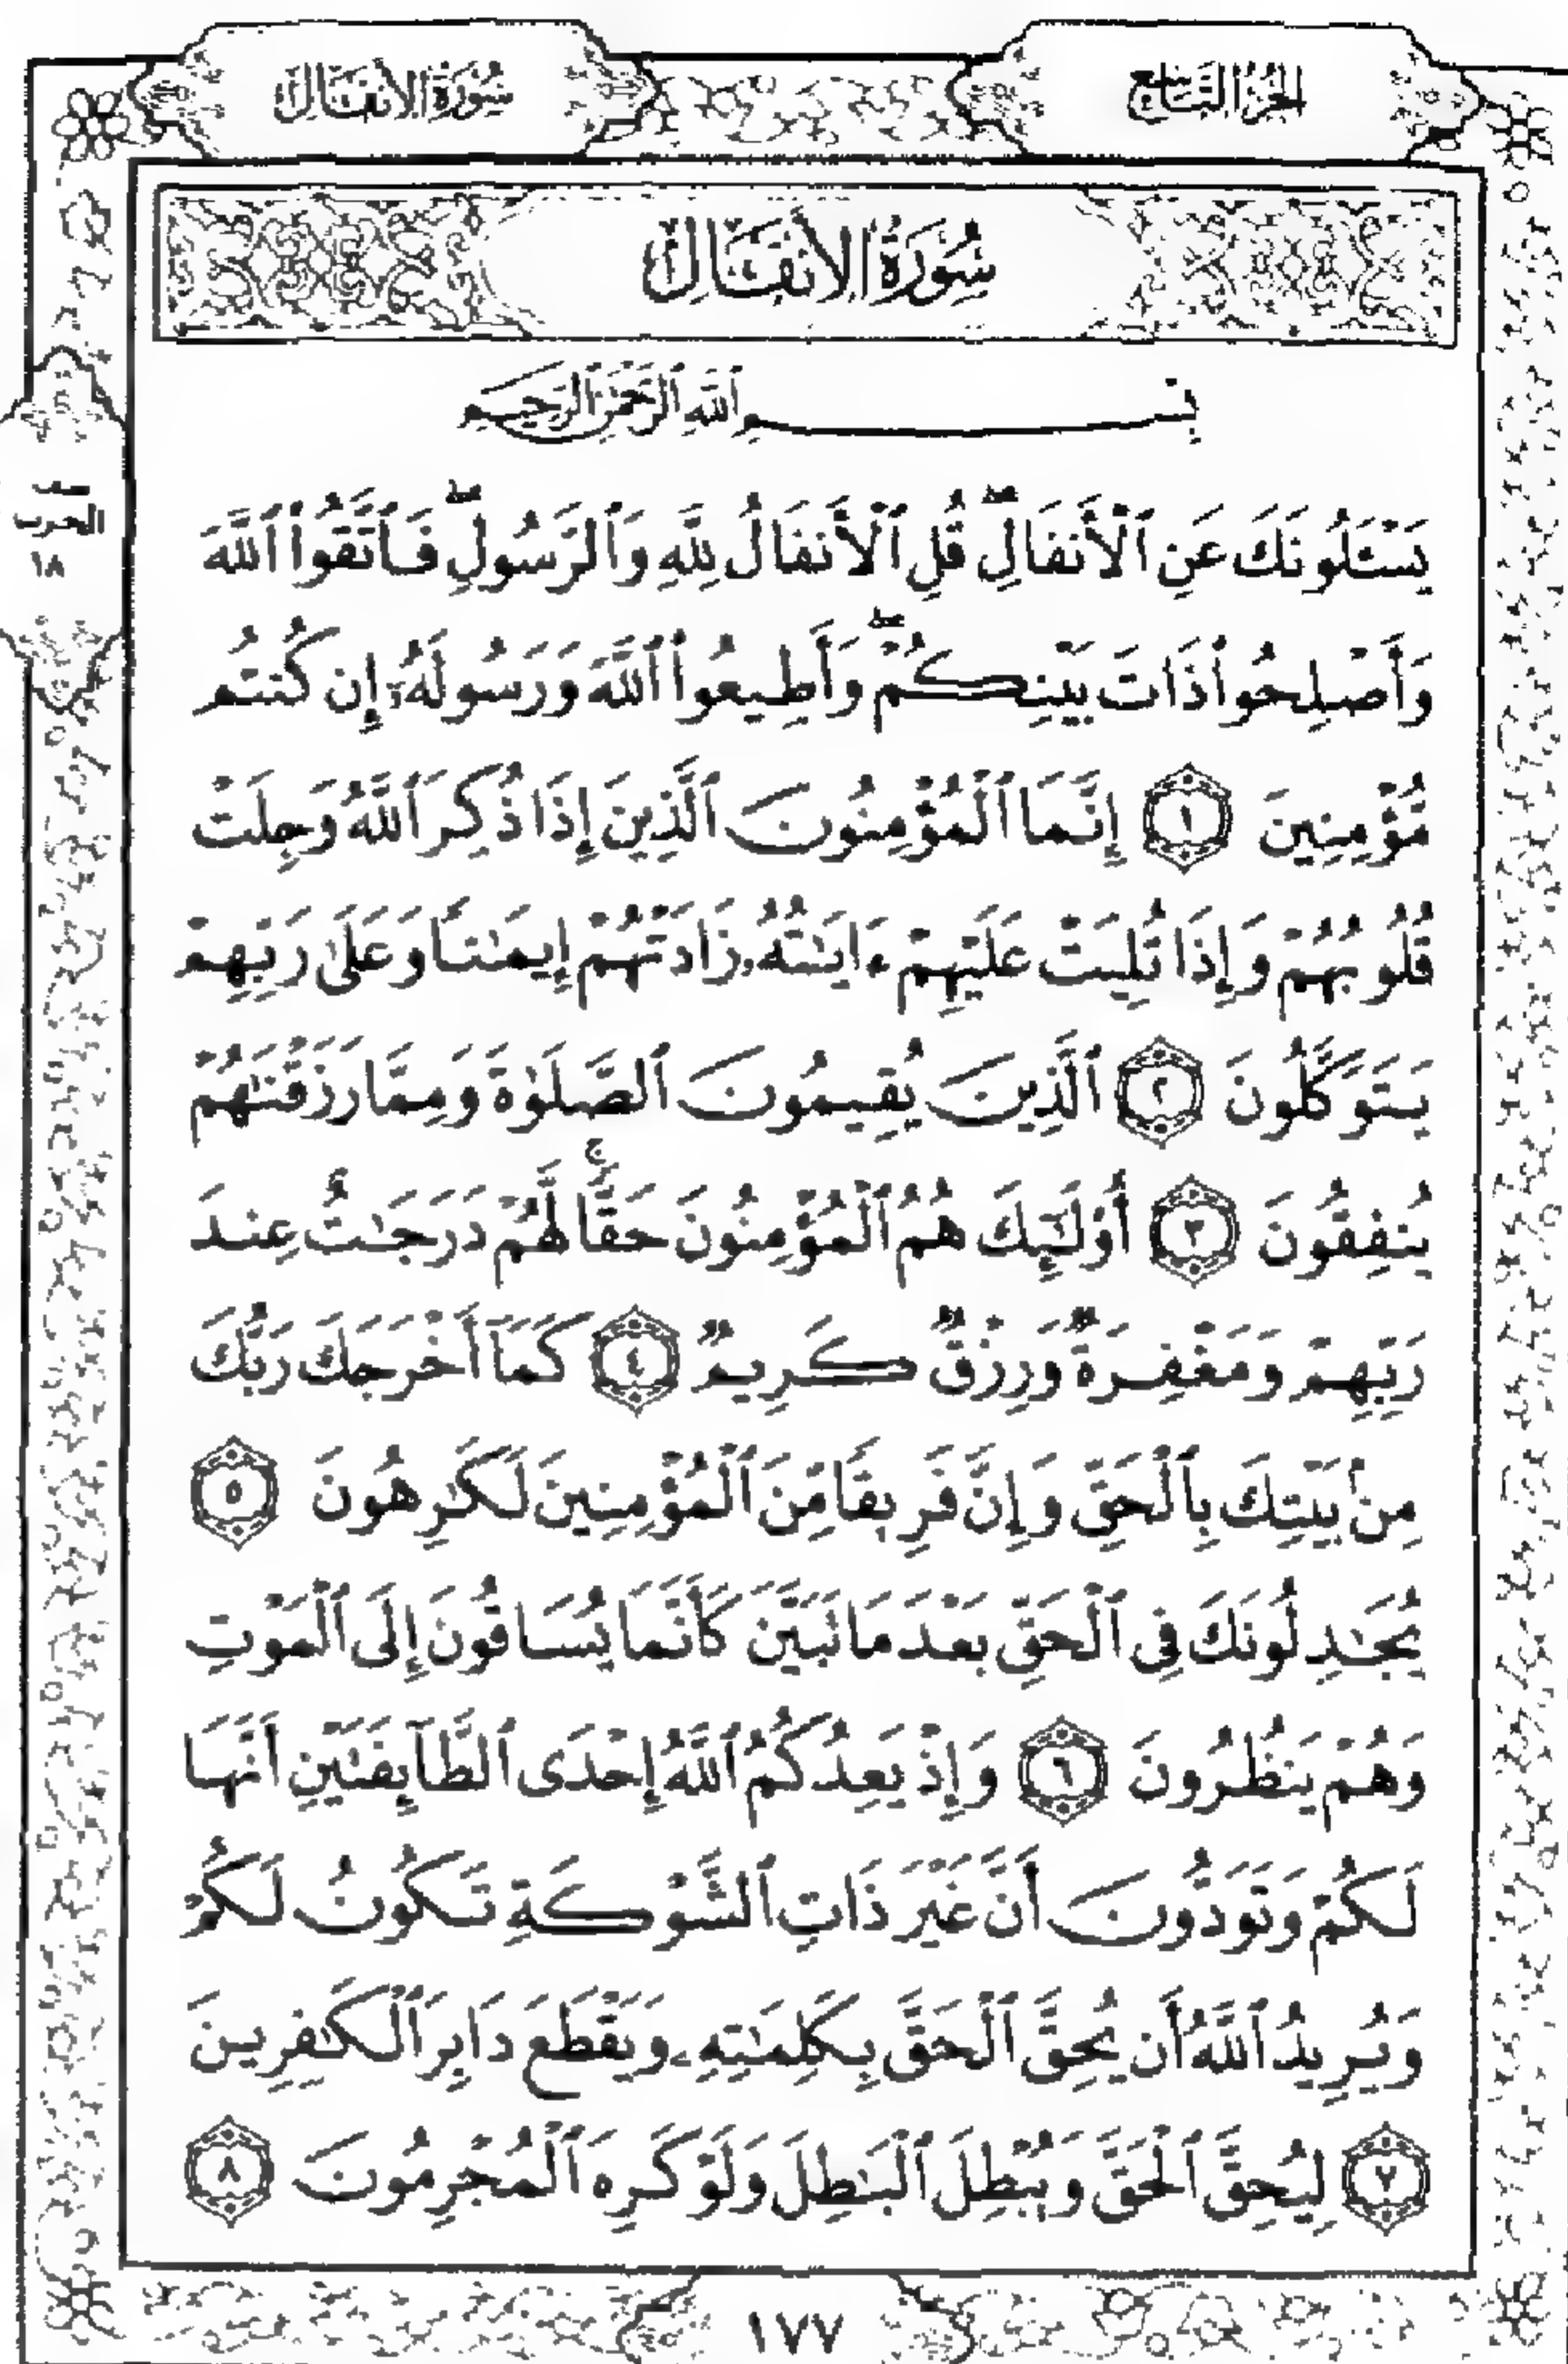 الجزء التاسع
سورة الأنفال
سُورَةُ الأَنفَالِ
بِسْمِ ٱللَّهِ ٱلرَّحْمَٰنِ ٱلرَّحِيمِ
يَسْـَٔلُونَكَ عَنِ ٱلْأَنفَالِۖ قُلِ ٱلْأَنفَالُ لِلَّهِ وَٱلرَّسُولِۖ فَٱتَّقُوا۟ ٱللَّهَ
وَأَصْلِحُوا۟ ذَاتَ بَيْنِكُمْۖ وَأَطِيعُوا۟ ٱللَّهَ وَرَسُولَهُۥٓ إِن كُنتُم
مُّؤْمِنِينَ ١ إِنَّمَا ٱلْمُؤْمِنُونَ ٱلَّذِينَ إِذَا ذُكِرَ ٱللَّهُ وَجِلَتْ
قُلُوبُهُمْ وَإِذَا تُلِيَتْ عَلَيْهِمْ ءَايَٰتُهُۥ زَادَتْهُمْ إِيمَٰنًا وَعَلَىٰ رَبِّهِمْ
يَتَوَكَّلُونَ ٢ ٱلَّذِينَ يُقِيمُونَ ٱلصَّلَوٰةَ وَمِمَّا رَزَقْنَٰهُمْ
يُنفِقُونَ ٣ أُو۟لَٰٓئِكَ هُمُ ٱلْمُؤْمِنُونَ حَقًّاۚ لَّهُمْ دَرَجَٰتٌ عِندَ
رَبِّهِمْ وَمَغْفِرَةٌ وَرِزْقٌ كَرِيمٌ ٤ كَمَآ أَخْرَجَكَ رَبُّكَ
مِنۢ بَيْتِكَ بِٱلْحَقِّ وَإِنَّ فَرِيقًا مِّنَ ٱلْمُؤْمِنِينَ لَكَٰرِهُونَ ٥
يُجَٰدِلُونَكَ فِى ٱلْحَقِّ بَعْدَ مَا تَبَيَّنَ كَأَنَّمَا يُسَاقُونَ إِلَى ٱلْمَوْتِ
وَهُمْ يَنظُرُونَ ٦ وَإِذْ يَعِدُكُمُ ٱللَّهُ إِحْدَى ٱلطَّآئِفَتَيْنِ أَنَّهَا
لَكُمْ وَتَوَدُّونَ أَنَّ غَيْرَ ذَاتِ ٱلشَّوْكَةِ تَكُونُ لَكُمْ
وَيُرِيدُ ٱللَّهُ أَن يُحِقَّ ٱلْحَقَّ بِكَلِمَٰتِهِۦ وَيَقْطَعَ دَابِرَ ٱلْكَٰفِرِينَ
٧ لِيُحِقَّ ٱلْحَقَّ وَيُبْطِلَ ٱلْبَٰطِلَ وَلَوْ كَرِهَ ٱلْمُجْرِمُونَ ٨
نصف
الحزب
١٨
١٧٧